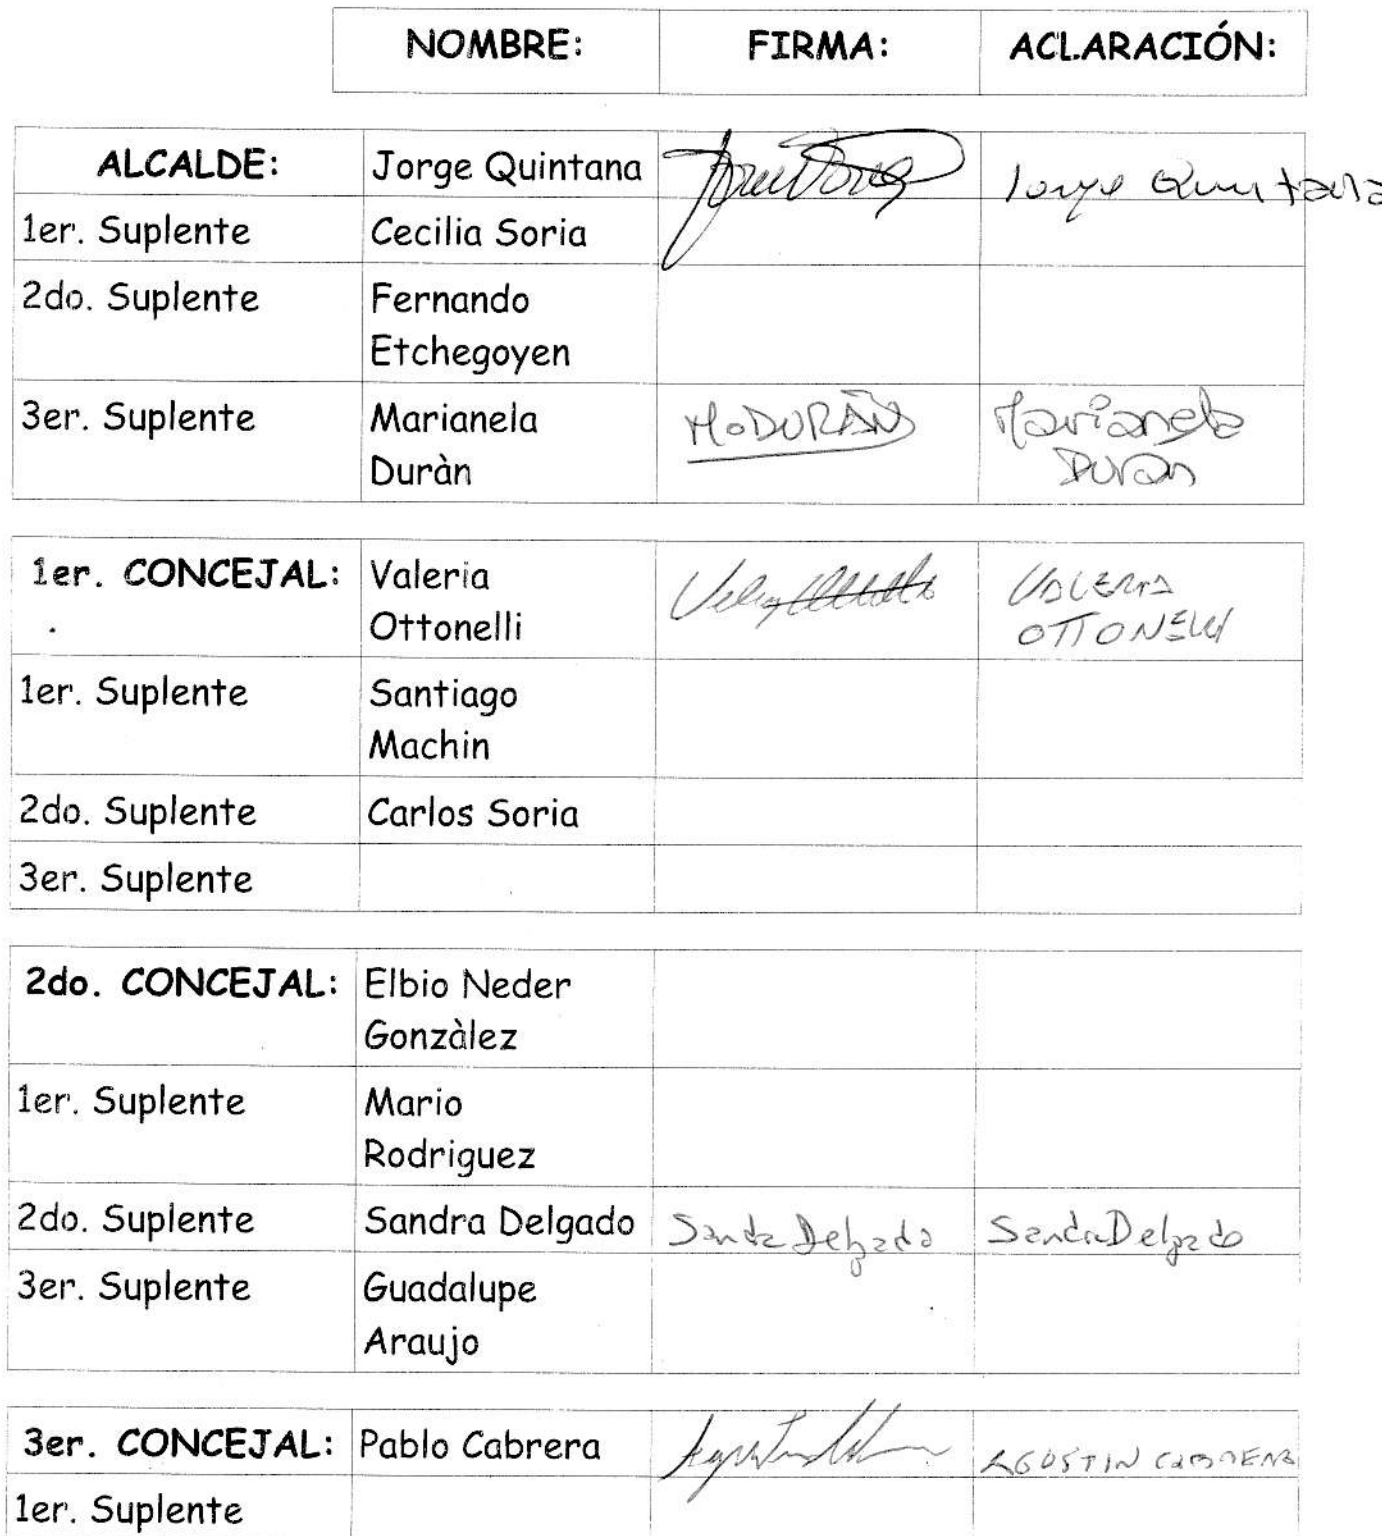 NOMBRE: FIRMA: ACLARACIÓN:
ALCALDE: Jorge Quintana Jorge Quintana
1er. Suplente Cecilia Soria
2do. Suplente Fernando
Etchegoyen
3er. Suplente Marianela MoDURÁN Marianela
Duràn Duran
1er. CONCEJAL: Valeria VALERIA
Ottonelli OTTONELLI
1er. Suplente Santiago
Machin
2do. Suplente Carlos Soria
3er. Suplente
2do. CONCEJAL: Elbio Neder
Gonzàlez
1er. Suplente Mario
Rodriguez
2do. Suplente Sandra Delgado Sandra Delgado Sandra Delgado
3er. Suplente Guadalupe
Araujo
3er. CONCEJAL: Pablo Cabrera AGUSTIN CABRERA
1er. Suplente